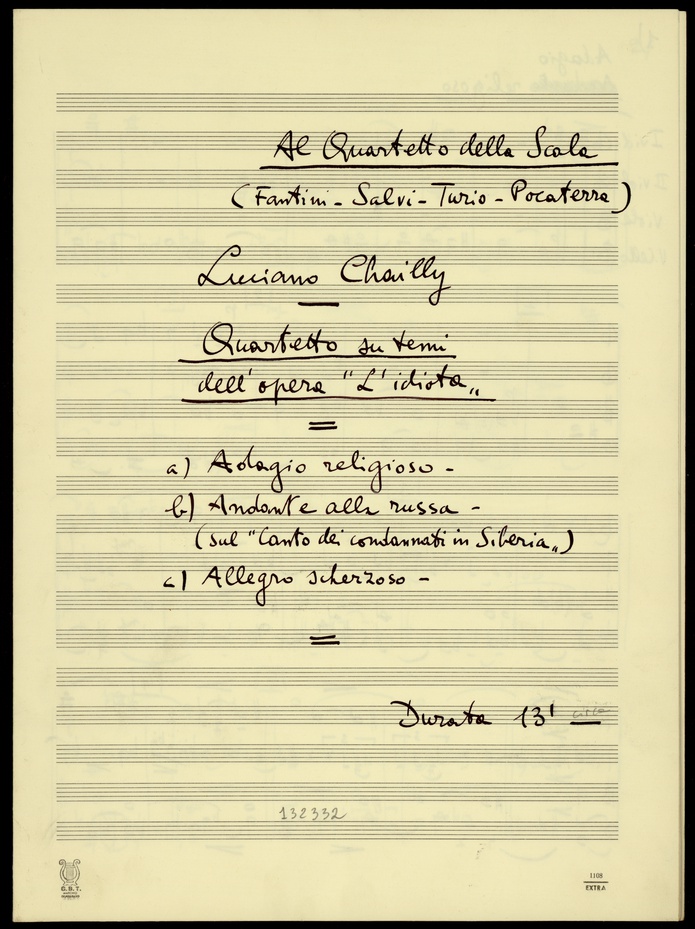 Al Quartetto della Scala
(Fantini - Salvi - Turio - Pocaterra)
Luciano Chailly
Quartetto su temi
dell'opera "L'idiota„
a) Adagio religioso -
b) Andante alla russa -
(sul "Canto dei condannati in Siberia„)
c) Allegro scherzoso -
Durata 13' circa
132332
G.B.T.
1108
EXTRA